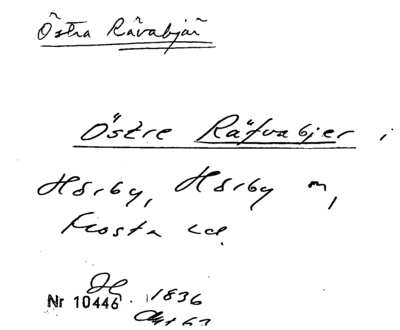 Östra Rävabjär
Östre Räfvabjer i
Hörby, Hörby m,
Frosta hd.
Nr 10446 1836
Akt 63